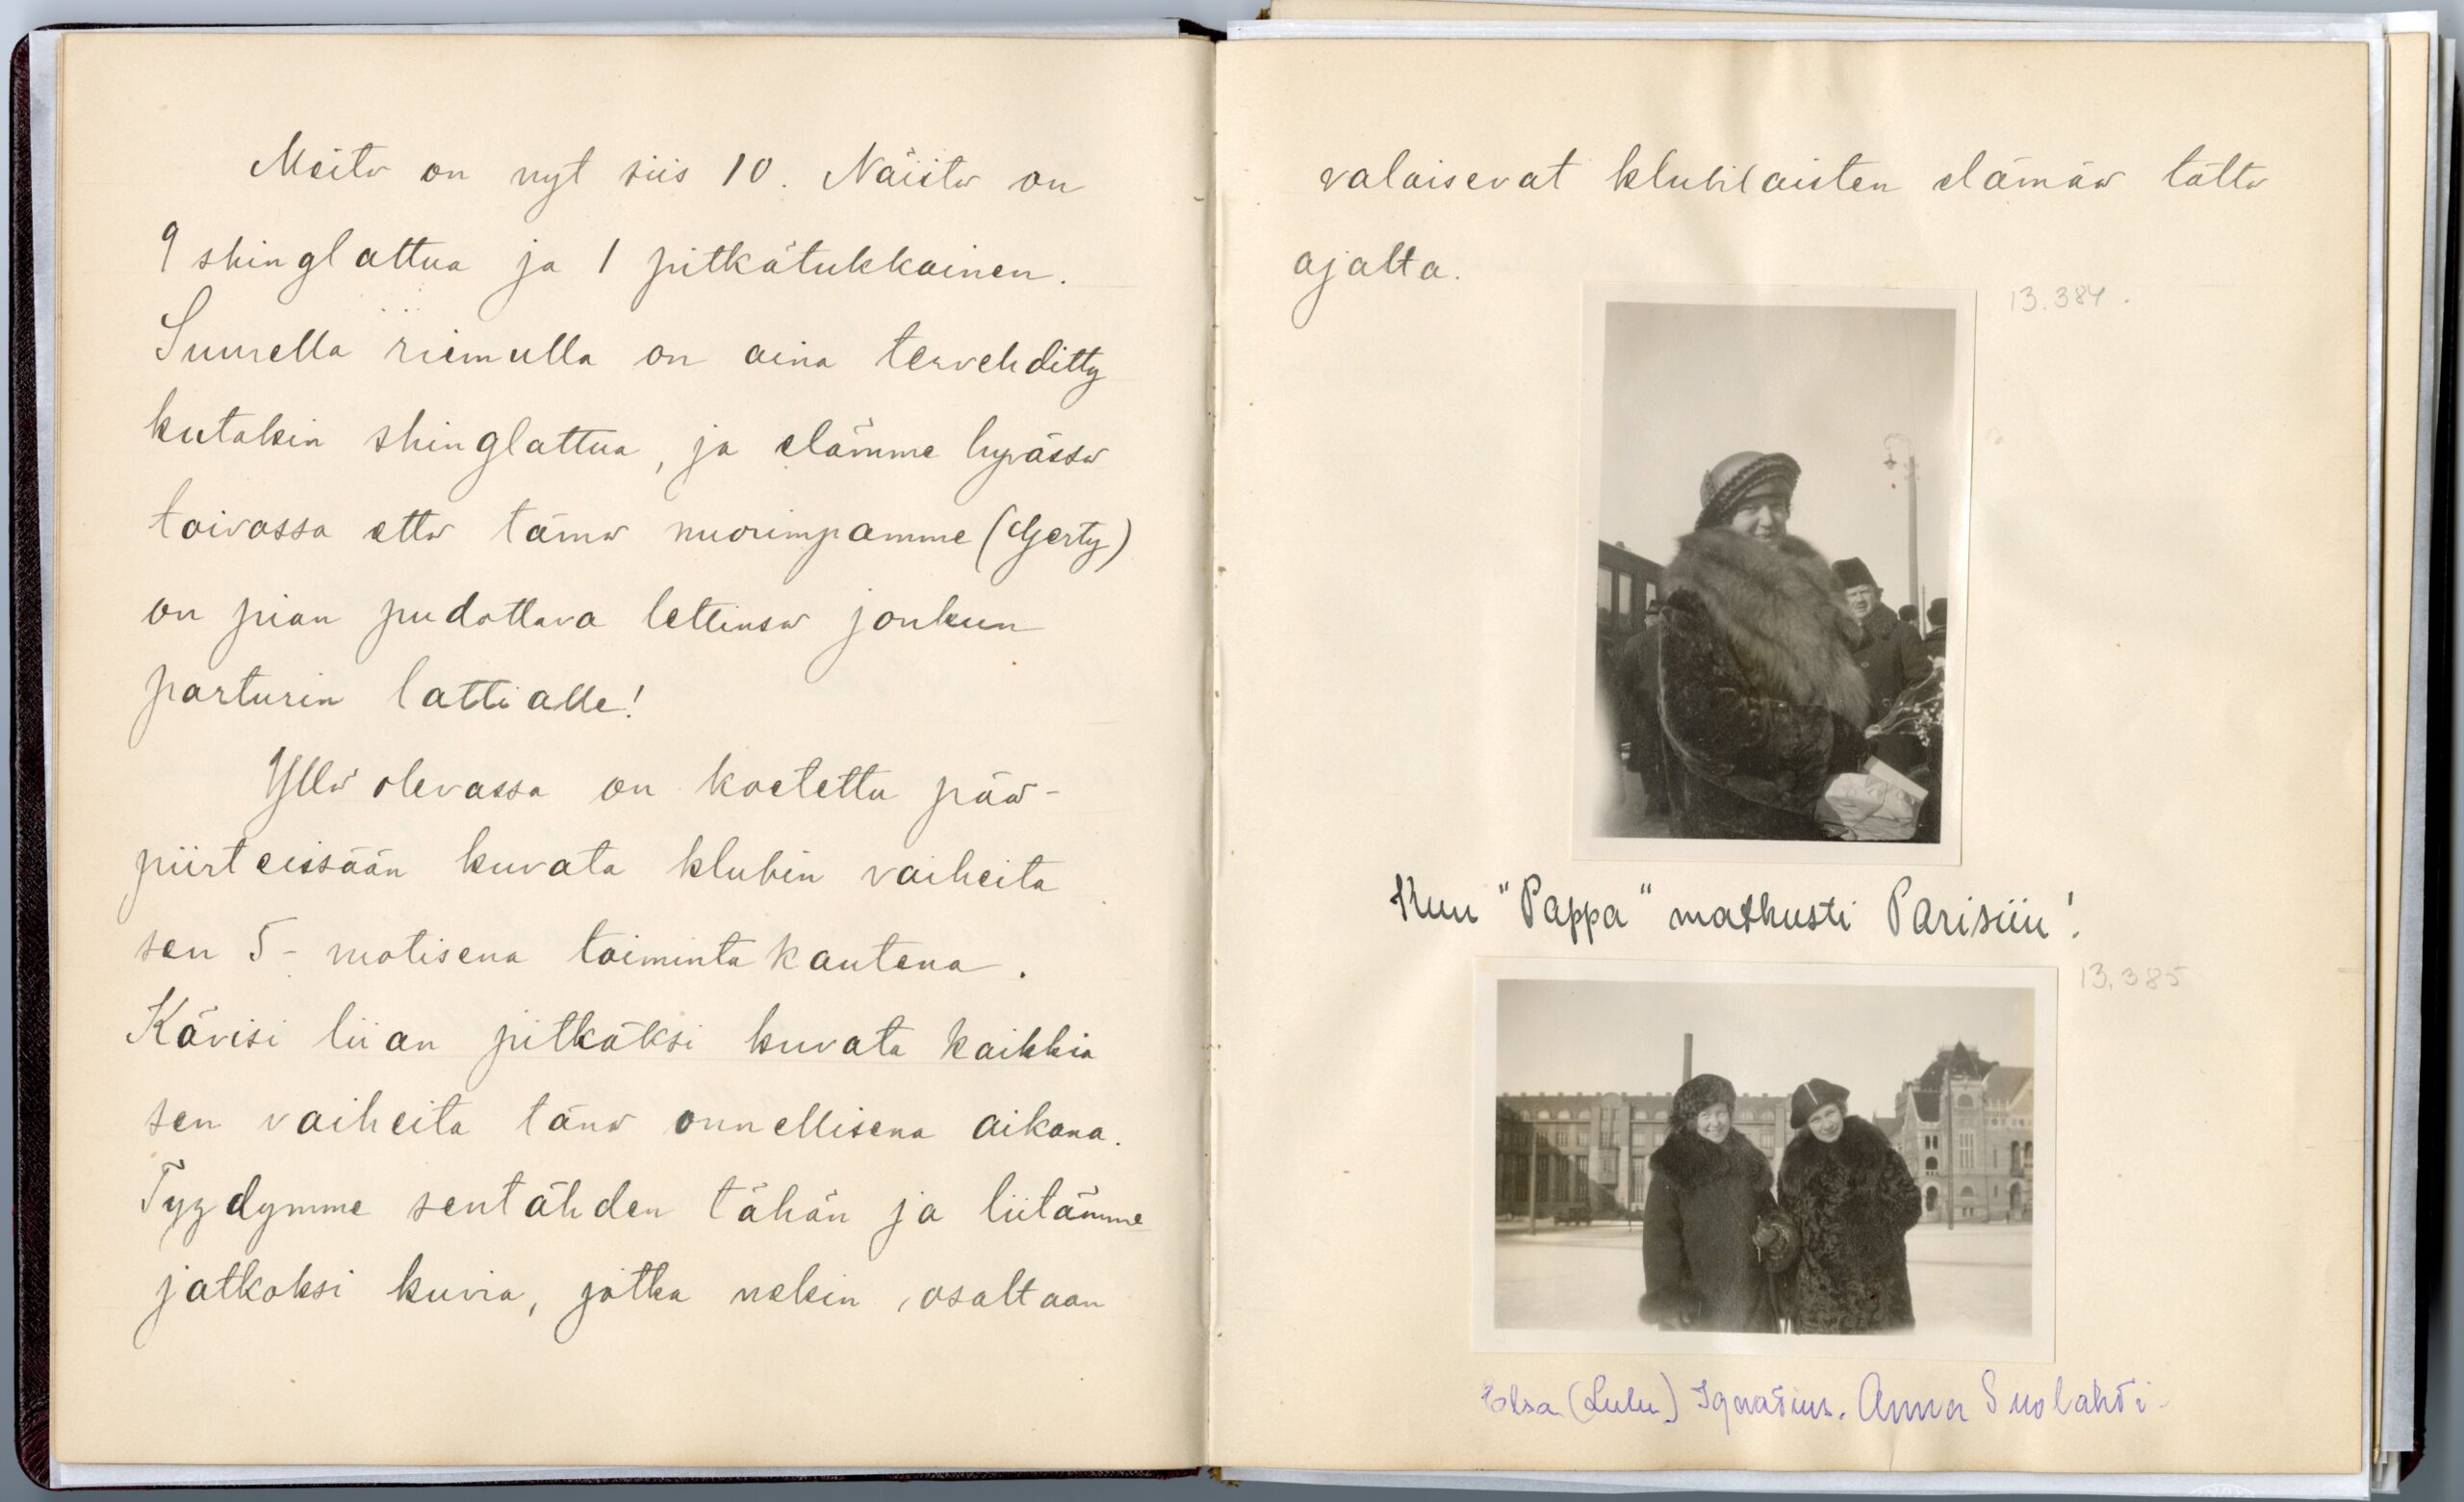 Meitä on nyt siis 10. Näistä on
9 shinglattua ja 1 pitkätukkainen.
Suurella riemulla on aina tervehditty
kutakin shinglattua, ja elämme hyvässä
toivossa että tämä nuorimpamme (Gerty)
on pian pudottava lettinsä jonkun
parturin lattialle!
Yllä olevassa on koetettu pää-
piirteissään kuvata klubin vaiheita
sen 5-vuotisena toimintakautena.
Kävisi liian pitkäksi kuvata kaikkia
sen vaiheita tänä onnellisena aikana.
Tyydymme sentähden tähän ja liitämme
jatkoksi kuvia, jotka nekin, osaltaan
valaisevat klubilaisten elämää tältä
ajalta.
13.384.
Kun "Pappa" matkusti Parisiin!
13.385
Elsa (Lulu) Ignatius. Anna Suolahti